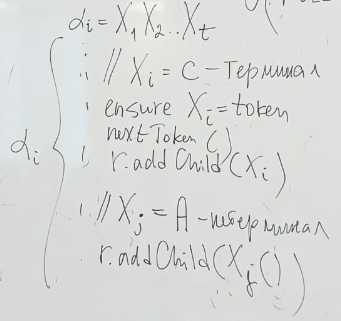 αᵢ = X₁ X₂ .. Xₜ
// Xᵢ = C - Терминал
ensure Xᵢ = token
nextToken()
r.addChild(Xᵢ)
αᵢ {
// Xⱼ = A - нетерминал
r.addChild(Xⱼ())